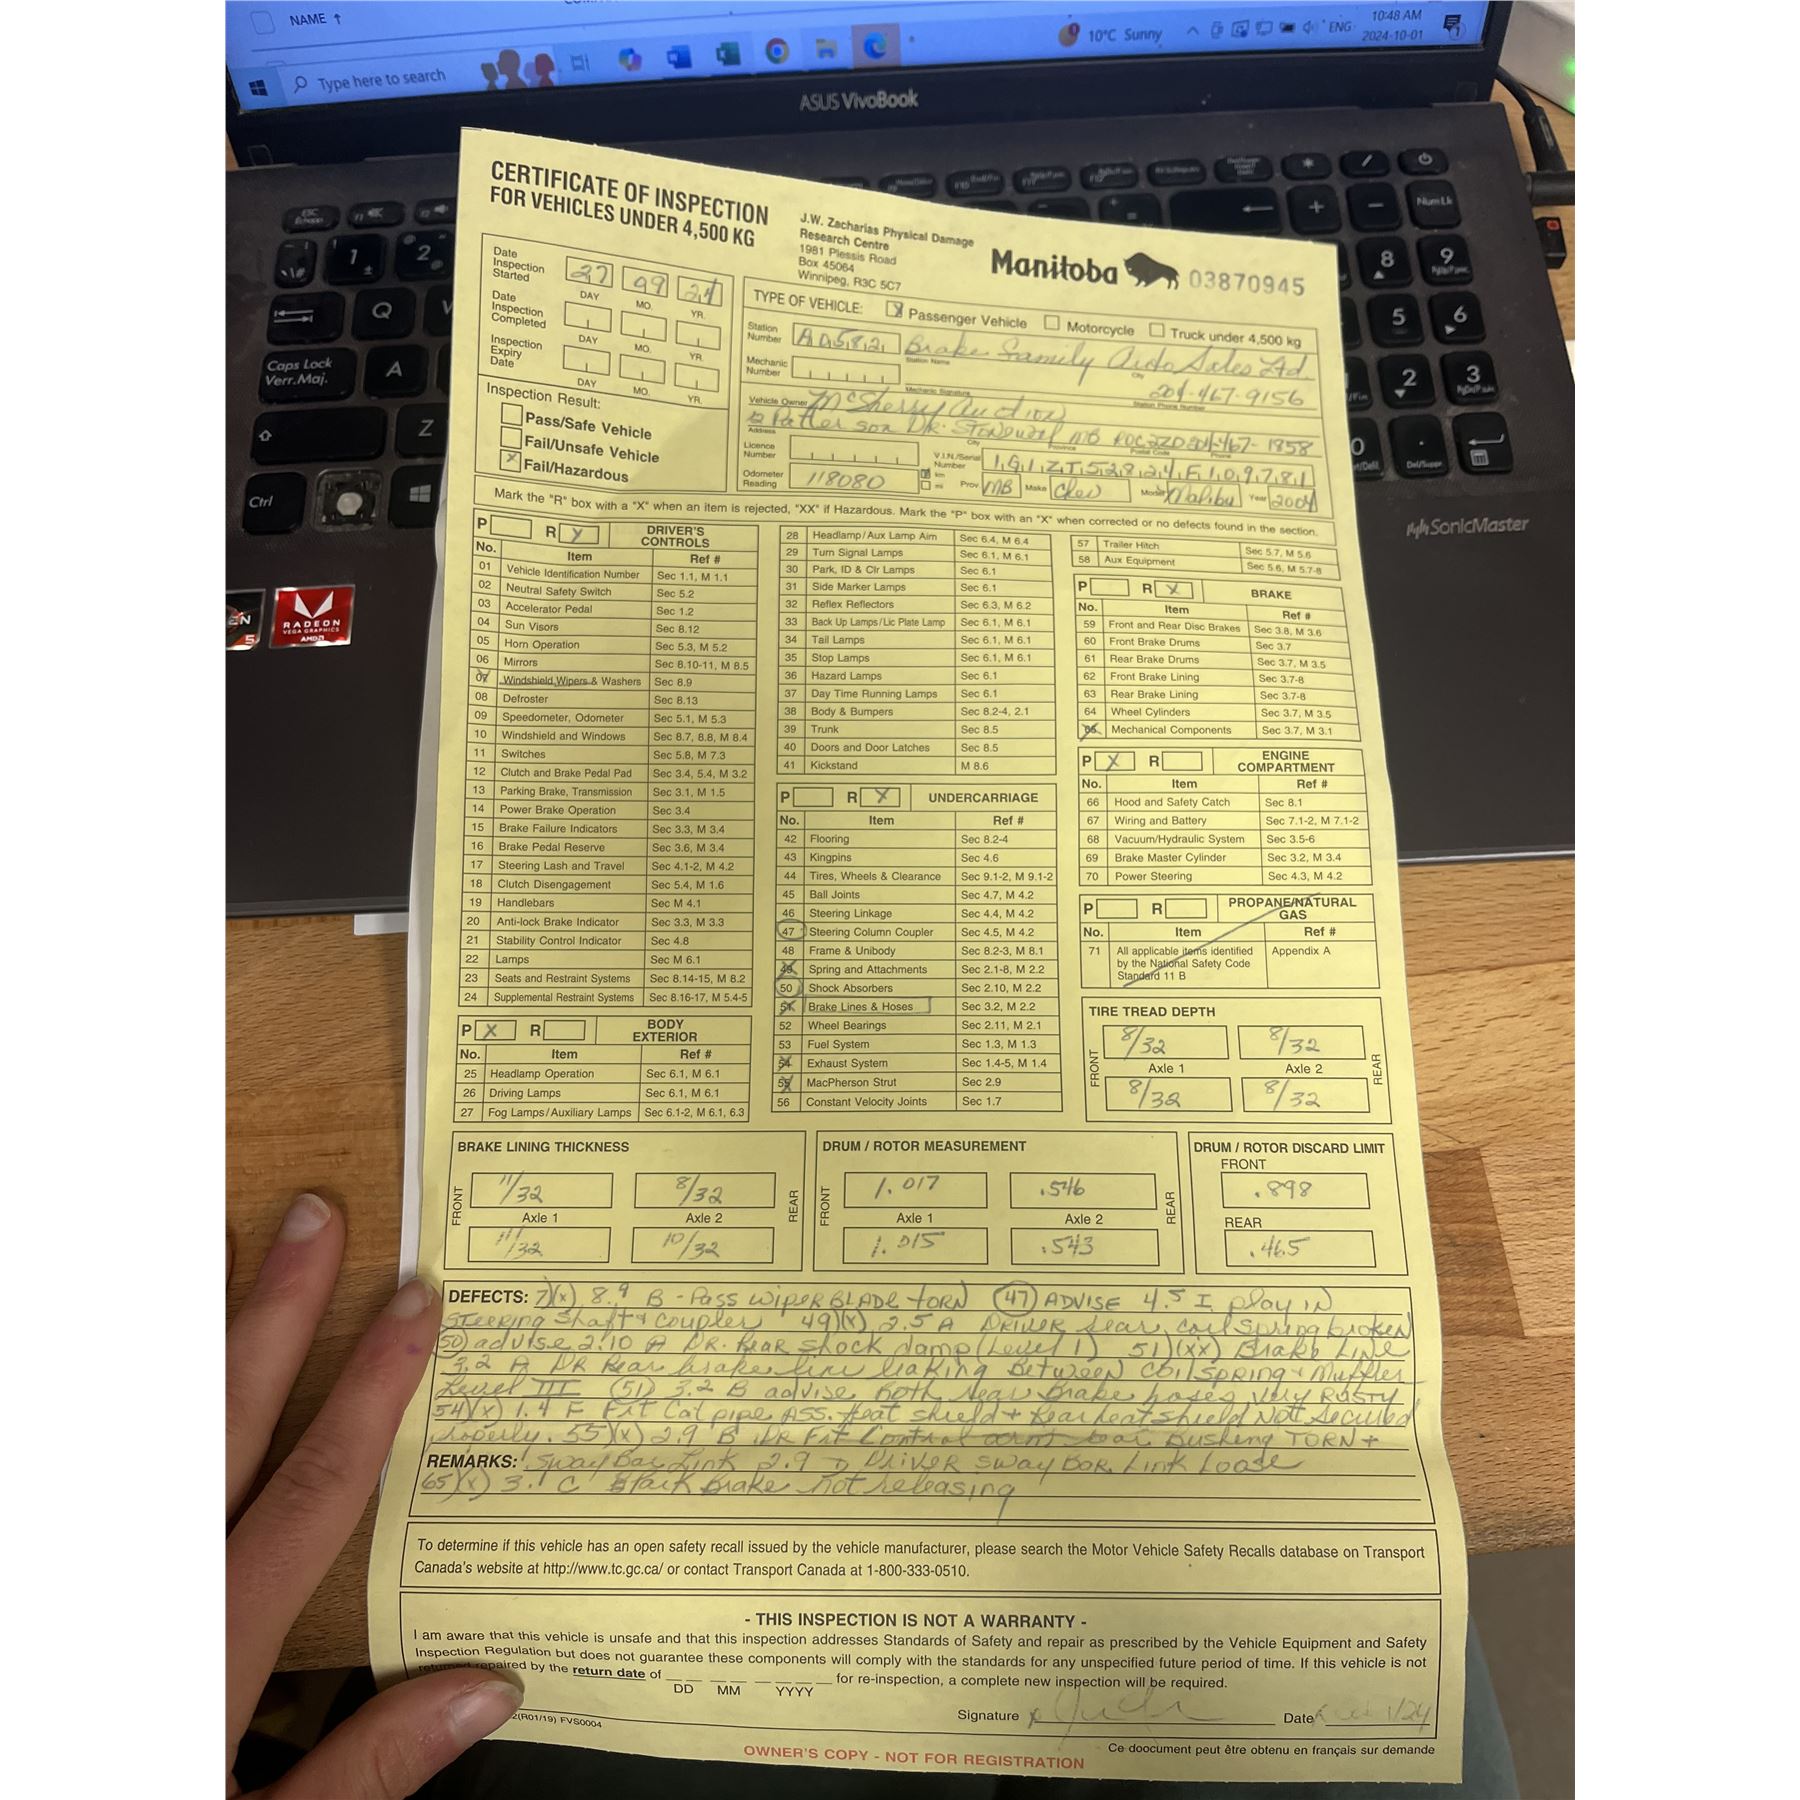 NAME ↑
Type here to search
10°C Sunny
ENG
10:48 AM
2024-10-01
ASUS VivoBook
SonicMaster
RADEON
VEGA GRAPHICS
AMD
5
Caps Lock
Verr.Maj.
Ctrl
Q
A
Z
1
2
NumLk
8
9
5
6
2
3
0
CERTIFICATE OF INSPECTION
FOR VEHICLES UNDER 4,500 KG
J.W. Zacharias Physical Damage
Research Centre
1981 Plessis Road
Box 45064
Winnipeg, R3C 5C7
Manitoba 03870945
Date Inspection Started 27 09 24
DAY MO. YR.
Date Inspection Completed
DAY MO. YR.
Inspection Expiry Date
DAY MO. YR.
Inspection Result:
Pass/Safe Vehicle
Fail/Unsafe Vehicle
X Fail/Hazardous
TYPE OF VEHICLE: X Passenger Vehicle Motorcycle Truck under 4,500 kg
Station Number A0582 Brake Family Auto Sales Ltd.
Station Name City
Mechanic Number 204-467-9156
Mechanic Signature Station Phone Number
Vehicle Owner McSherry Auction
12 Patterson Dr. Stonewall MB R0C2Z0 204-467-1858
Address City Province Postal Code Phone
Licence Number V.I.N./Serial Number 1G1ZT52824F109781
Odometer Reading 118080 km mi Prov. MB Make Chev Model Malibu Year 2004
Mark the "R" box with a "X" when an item is rejected, "XX" if Hazardous. Mark the "P" box with an "X" when corrected or no defects found in the section.
P R X DRIVER'S CONTROLS
No. Item Ref #
01 Vehicle Identification Number Sec 1.1, M 1.1
02 Neutral Safety Switch Sec 5.2
03 Accelerator Pedal Sec 1.2
04 Sun Visors Sec 8.12
05 Horn Operation Sec 5.3, M 5.2
06 Mirrors Sec 8.10-11, M 8.5
07 Windshield Wipers & Washers Sec 8.9
08 Defroster Sec 8.13
09 Speedometer, Odometer Sec 5.1, M 5.3
10 Windshield and Windows Sec 8.7, 8.8, M 8.4
11 Switches Sec 5.8, M 7.3
12 Clutch and Brake Pedal Pad Sec 3.4, 5.4, M 3.2
13 Parking Brake, Transmission Sec 3.1, M 1.5
14 Power Brake Operation Sec 3.4
15 Brake Failure Indicators Sec 3.3, M 3.4
16 Brake Pedal Reserve Sec 3.6, M 3.4
17 Steering Lash and Travel Sec 4.1-2, M 4.2
18 Clutch Disengagement Sec 5.4, M 1.6
19 Handlebars Sec M 4.1
20 Anti-lock Brake Indicator Sec 3.3, M 3.3
21 Stability Control Indicator Sec 4.8
22 Lamps Sec M 6.1
23 Seats and Restraint Systems Sec 8.14-15, M 8.2
24 Supplemental Restraint Systems Sec 8.16-17, M 5.4-5
P X R BODY EXTERIOR
No. Item Ref #
25 Headlamp Operation Sec 6.1, M 6.1
26 Driving Lamps Sec 6.1, M 6.1
27 Fog Lamps/Auxiliary Lamps Sec 6.1-2, M 6.1, 6.3
28 Headlamp/Aux Lamp Aim Sec 6.4, M 6.4
29 Turn Signal Lamps Sec 6.1, M 6.1
30 Park, ID & Clr Lamps Sec 6.1
31 Side Marker Lamps Sec 6.1
32 Reflex Reflectors Sec 6.3, M 6.2
33 Back Up Lamps/Lic Plate Lamp Sec 6.1, M 6.1
34 Tail Lamps Sec 6.1, M 6.1
35 Stop Lamps Sec 6.1, M 6.1
36 Hazard Lamps Sec 6.1
37 Day Time Running Lamps Sec 6.1
38 Body & Bumpers Sec 8.2-4, 2.1
39 Trunk Sec 8.5
40 Doors and Door Latches Sec 8.5
41 Kickstand M 8.6
P R X UNDERCARRIAGE
No. Item Ref #
42 Flooring Sec 8.2-4
43 Kingpins Sec 4.6
44 Tires, Wheels & Clearance Sec 9.1-2, M 9.1-2
45 Ball Joints Sec 4.7, M 4.2
46 Steering Linkage Sec 4.4, M 4.2
47 Steering Column Coupler Sec 4.5, M 4.2
48 Frame & Unibody Sec 8.2-3, M 8.1
49 Spring and Attachments Sec 2.1-8, M 2.2
50 Shock Absorbers Sec 2.10, M 2.2
51 Brake Lines & Hoses Sec 3.2, M 2.2
52 Wheel Bearings Sec 2.11, M 2.1
53 Fuel System Sec 1.3, M 1.3
54 Exhaust System Sec 1.4-5, M 1.4
55 MacPherson Strut Sec 2.9
56 Constant Velocity Joints Sec 1.7
57 Trailer Hitch Sec 5.7, M 5.6
58 Aux Equipment Sec 5.6, M 5.7-8
P R X BRAKE
No. Item Ref #
59 Front and Rear Disc Brakes Sec 3.8, M 3.6
60 Front Brake Drums Sec 3.7
61 Rear Brake Drums Sec 3.7, M 3.5
62 Front Brake Lining Sec 3.7-8
63 Rear Brake Lining Sec 3.7-8
64 Wheel Cylinders Sec 3.7, M 3.5
65 Mechanical Components Sec 3.7, M 3.1
P X R ENGINE COMPARTMENT
No. Item Ref #
66 Hood and Safety Catch Sec 8.1
67 Wiring and Battery Sec 7.1-2, M 7.1-2
68 Vacuum/Hydraulic System Sec 3.5-6
69 Brake Master Cylinder Sec 3.2, M 3.4
70 Power Steering Sec 4.3, M 4.2
P R PROPANE/NATURAL GAS
No. Item Ref #
71 All applicable items identified Appendix A
by the National Safety Code
Standard 11 B
TIRE TREAD DEPTH
FRONT 8/32 8/32 REAR
Axle 1 Axle 2
8/32 8/32
BRAKE LINING THICKNESS
FRONT 11/32 8/32 REAR
Axle 1 Axle 2
11/32 10/32
DRUM / ROTOR MEASUREMENT
FRONT 1.017 .546 REAR
Axle 1 Axle 2
1.015 .543
DRUM / ROTOR DISCARD LIMIT
FRONT
.898
REAR
.465
DEFECTS: 7)(x) 8.9 B - Pass wiper BLADE torn (47) ADVISE 4.5 I play in
Steering Shaft & coupler 49)(x) 2.5 A DRIVER rear coil spring broken
50) advise 2.10 A DR. Rear shock damp (Level 1) 51)(xx) Brake Line
3.2 A DR Rear brake line leaking Between coil spring & Muffler
Level III (51) 3.2 B advise both rear Brake hoses very RUSTY
54)(x) 1.4 F Frt Cat pipe ASS. Heat shield + Rear heat shield Not Secured
properly. 55)(x) 2.9 B DR Frt Control arm bushing TORN +
REMARKS: Sway Bar Link 2.9 D DRIVER SWAY BAR Link Loose
65)(x) 3.1 C Park Brake not releasing
To determine if this vehicle has an open safety recall issued by the vehicle manufacturer, please search the Motor Vehicle Safety Recalls database on Transport
Canada's website at http://www.tc.gc.ca/ or contact Transport Canada at 1-800-333-0510.
- THIS INSPECTION IS NOT A WARRANTY -
I am aware that this vehicle is unsafe and that this inspection addresses Standards of Safety and repair as prescribed by the Vehicle Equipment and Safety
Inspection Regulation but does not guarantee these components will comply with the standards for any unspecified future period of time. If this vehicle is not
returned repaired by the return date of __ __ ____ for re-inspection, a complete new inspection will be required.
DD MM YYYY
Signature x Date 1/24
2(R01/19) FVS0004
Ce doocument peut être obtenu en français sur demande
OWNER'S COPY - NOT FOR REGISTRATION